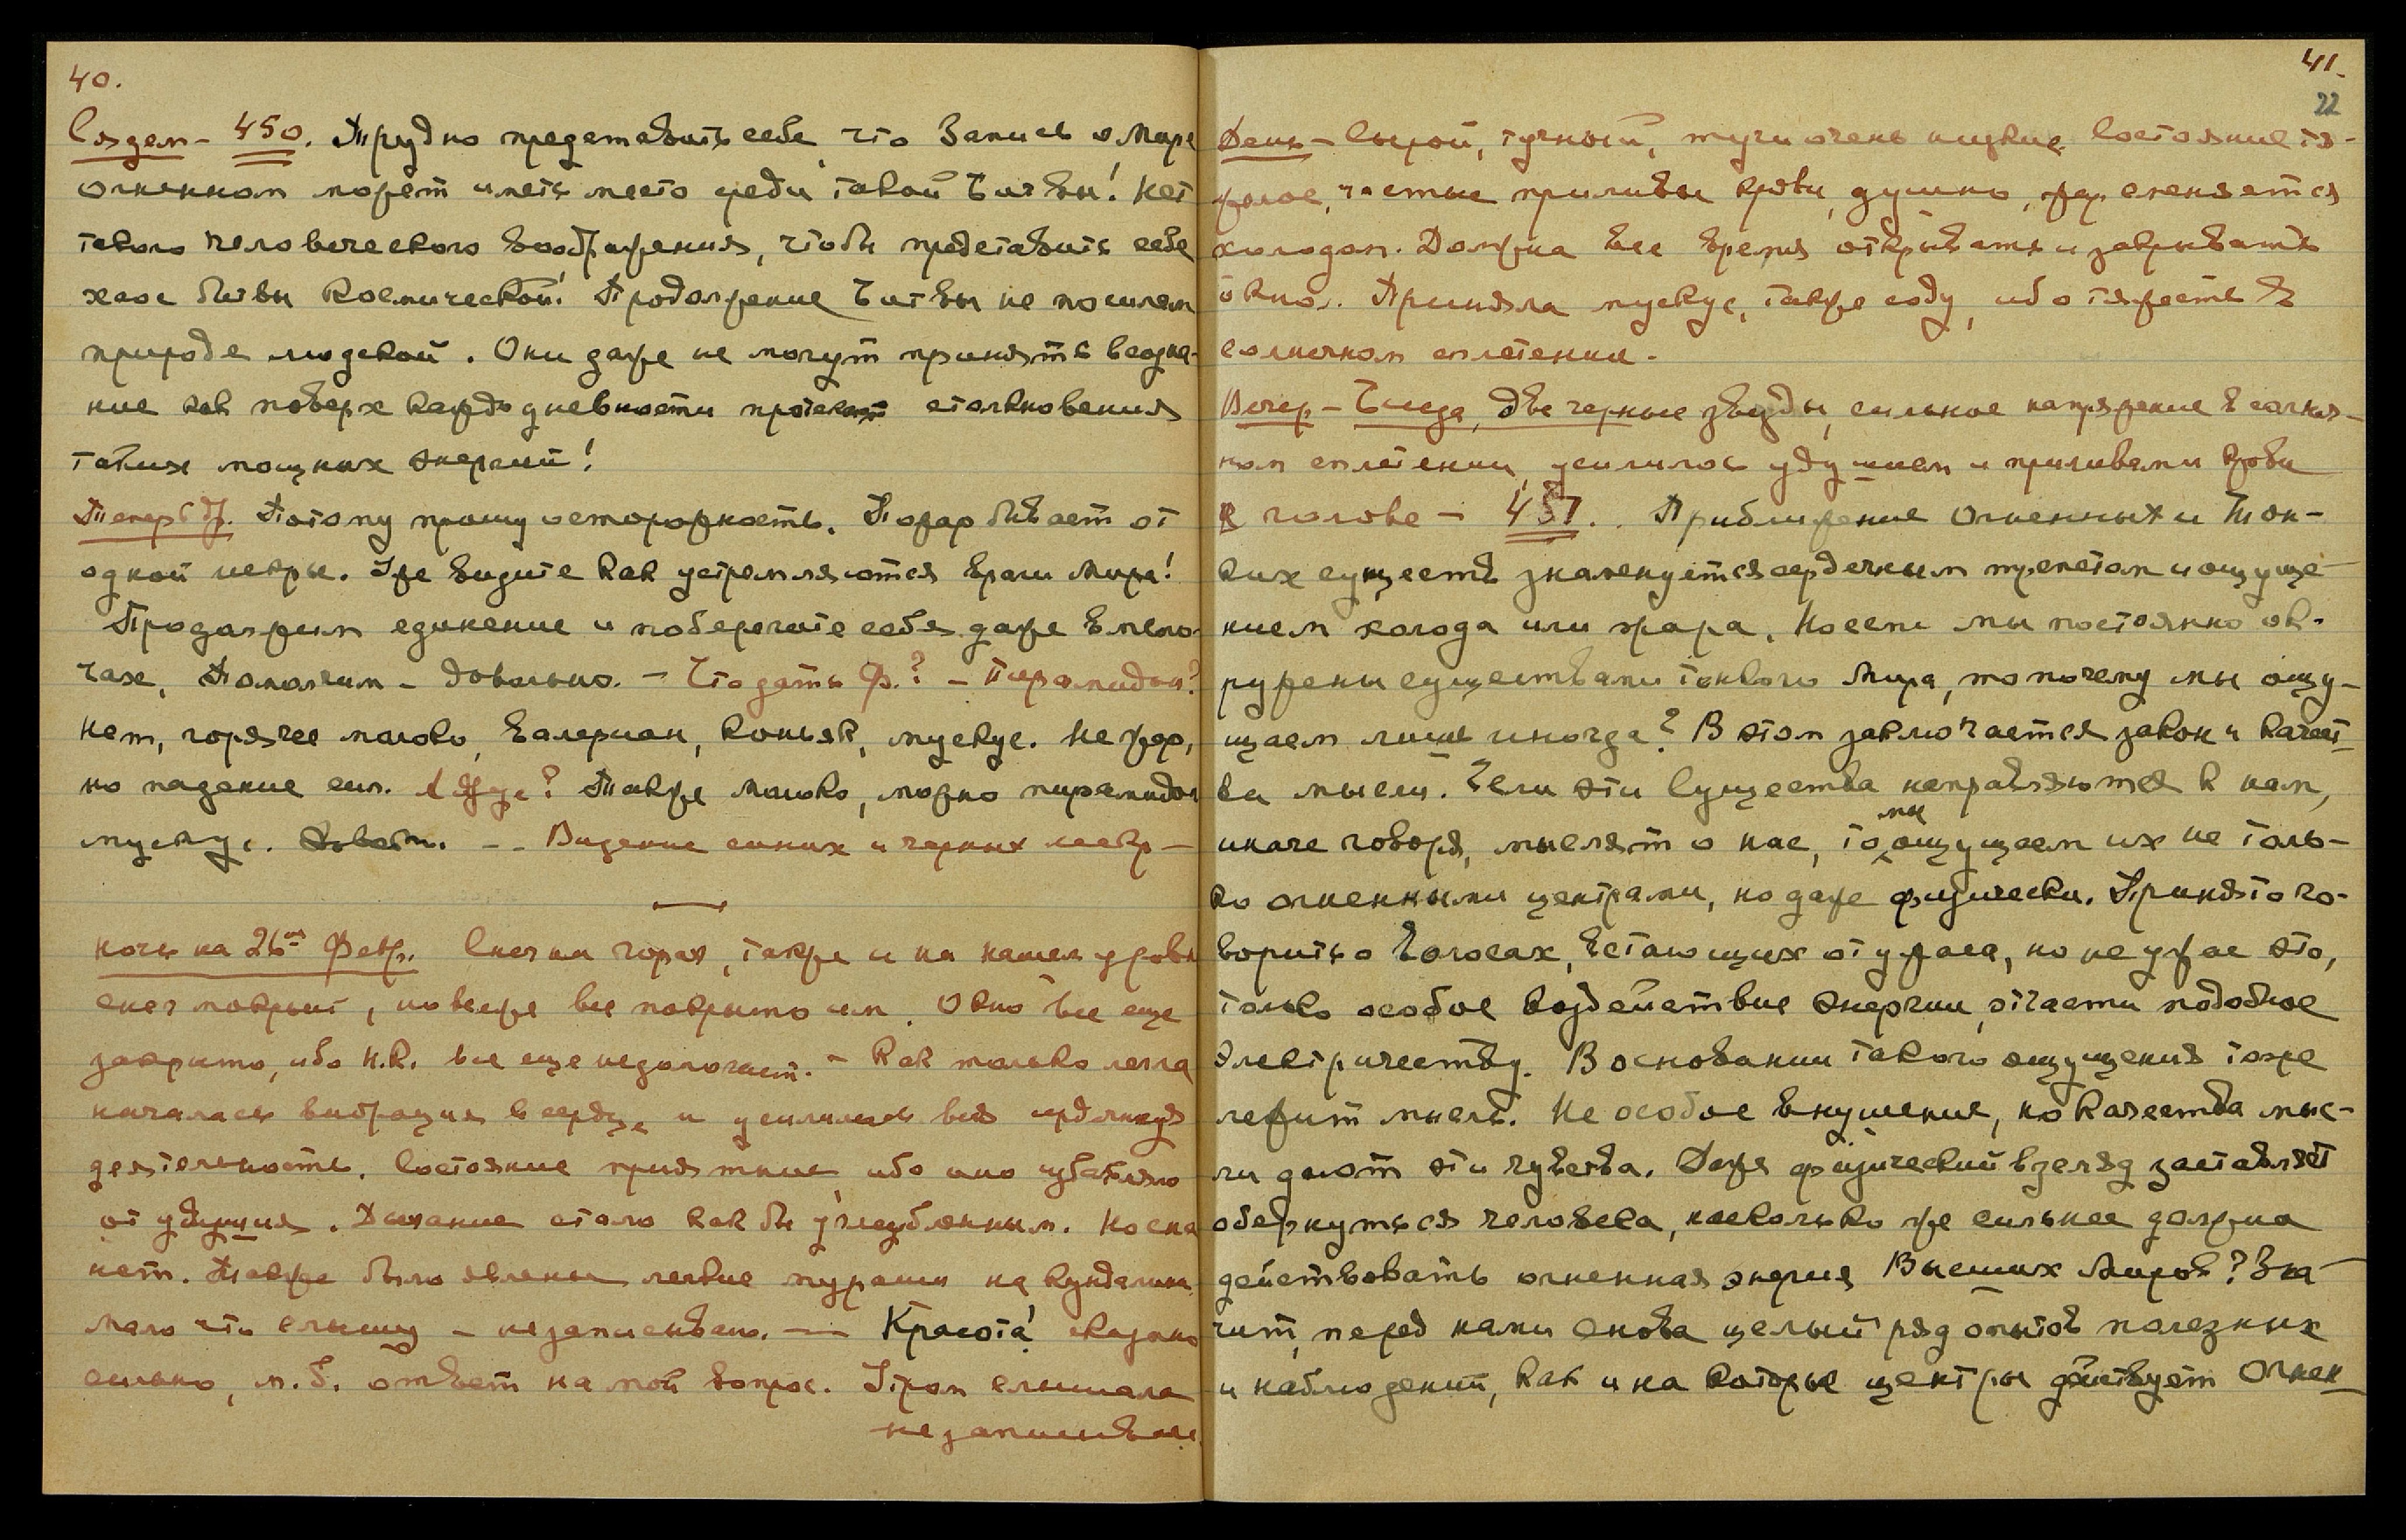 40.
Сядем - 450. Трудно представить себе, что Запись о Мире
огненном может иметь место среди такой Битвы! Нет
такого человеческого воображения, чтобы представить себе
хаос битвы Космической! Продолжение Битвы не по силам
природе людской. Они даже не могут принять в созна-
ние как поверх каждодневности протекают столкновения
таких мощных энергий!
Потому прошу осторожность. Пожар бывает от
одной искры. Уже видите как устремляются враги Мира!
Продолжим единение и поберегите себя даже в мело-
чах, Помолчим - довольно. - Что дать Ф.? - Пирамидон?
Нет, горячее молоко, Валериан, коньяк, мускус. Не жар,
но падение сил. Также молоко, можно пирамидон
мускус. Довольно. -- Видение синих и черных искр -
Ночь на 26ое Февр. Снег на горах, также и на нашем уровн
снег покрыт, но везде все покрыто им. Окно все еще
закрыто, ибо Н.К. все еще недомогает. - Как только легла
началась вибрация в сердце и усилилась вся сердечная
деятельность. Состояние приятное ибо оно избавляло
от удушия. Дыхание стало как бы углубленным. Но сна
нет. Также было явлены легкие мурашки на кундалини
Мало что слышу - не записываю. -- Красота! сказано
сильно, м.б. ответ на мой вопрос. Утром слышала
не записывала
41.
22
День - Сырой, тучный, тучи очень низкие. Состояние тя-
желое, частые приливы крови, душно, жар сменяется
холодом. Должна все время открывать и закрывать
окно. Приняла мускус, также соду, ибо тяжесть в
солнечном сплетении.
Вечер - Беседа, две черные звезды, сильное напряжение в солнеч-
ном сплетении, усилилось удушием и приливами крови
к голове - 451. Приближение Огненных и Тон-
ких существ знаменуется сердечным трепетом и ощуще-
нием холода или жара. Но если мы постоянно ок-
ружены существами тонкого Мира, то почему мы ощу-
щаем лишь иногда? В этом заключается закон и качест-
ва мысли. Если эти Существа направляются к нам,
иначе говоря, мыслят о нас, то мы ощущаем их не толь-
ко огненными центрами, но даже физически. Принято го-
ворить о волосах, встающих от ужаса, но не ужас это,
только особое воздействие энергии, отчасти подобное
электричеству. В основании такого ощущения тоже
лежит мысль. Не особое внушение, но качества мыс-
ли дают эти чувства. Даже физический взгляд заставляет
обернуться человека, насколько же сильнее должна
действовать огненная энергия Высших Миров? Зна-
чит, перед нами снова целый ряд опытов полезных
и наблюдений, как и на которые центры действует Огнен-